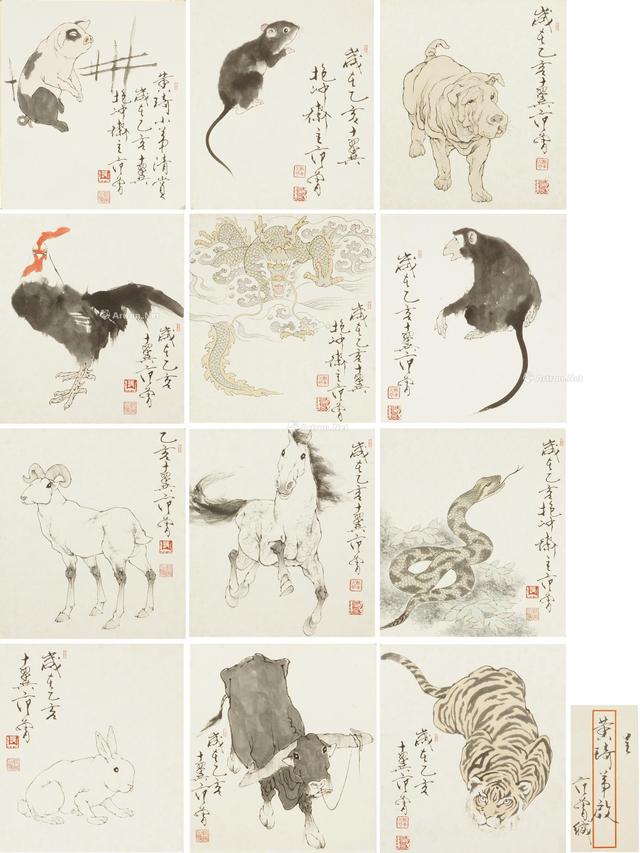 黄琦小弟清赏
岁在乙亥
十翼
抱冲斋主范曾
岁在乙亥十翼
抱冲斋主范曾
岁在乙亥十翼范曾
岁在乙亥
十翼范曾
岁在乙亥十翼
抱冲斋主范曾
岁在乙亥
十翼范曾
乙亥十翼范曾
岁在乙亥十翼范曾
岁在乙亥抱冲
斋主范曾
岁在乙亥
十翼范曾
岁在乙亥
十翼范曾
岁在乙亥
十翼范曾
呈
黄琦弟启
范曾缄
Artron.Net